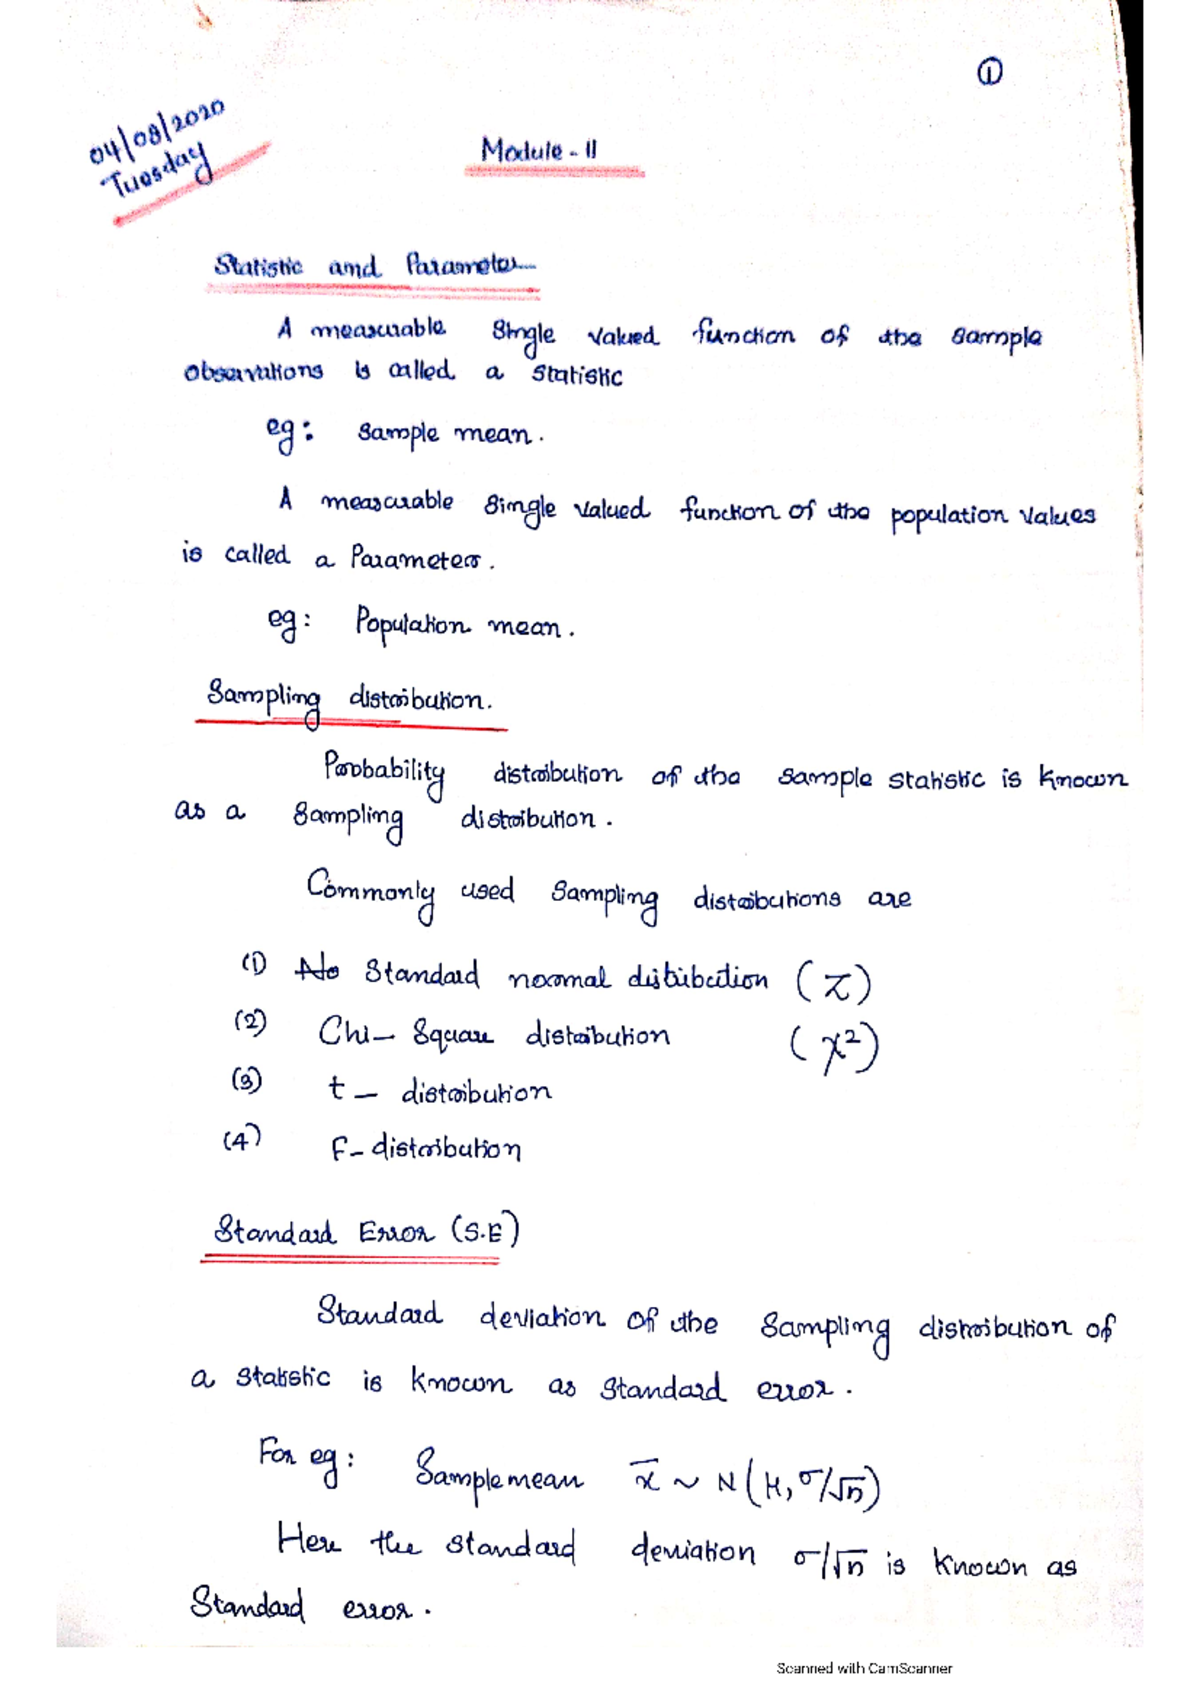 ①
04/08/2020
Tuesday
Module - II
Statistic and Parameter
A measurable Single valued function of the sample
observations is called a statistic
eg: Sample mean.
A measurable Single valued function of the population values
is called a Parameter.
eg: Population mean.
Sampling distribution.
Probability distribution of the sample statistic is known
as a Sampling distribution.
Commonly used Sampling distributions are
(1) No Standard normal distribution (Z)
(2) Chi- Square distribution (χ²)
(3) t - distribution
(4) F- distribution
Standard Error (S.E)
Standard deviation of the Sampling distribution of
a statistic is known as Standard error.
For eg: Sample mean x̄ ~ N(μ, σ/√n)
Here the standard deviation σ/√n is known as
Standard error.
Scanned with CamScanner